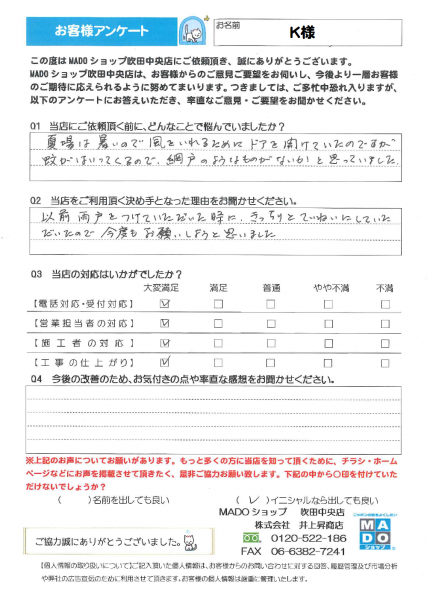 お客様アンケート
お名前
K様
この度はMADOショップ吹田中央店にご依頼頂き、誠にありがとうございます。
MADOショップ吹田中央店は、お客様からのご意見ご要望をお伺いし、今後より一層お客様
のご期待に応えられるように努めてまいります。つきましては、ご多忙中恐れ入りますが、
以下のアンケートにお答えいただき、率直なご意見・ご要望をお聞かせください。
Q1 当店にご依頼頂く前に、どんなことで悩んでいましたか?
夏場は暑いので風をいれるためにドアを開けていたのですが
蚊がはいってくるので、網戸のようなものがないか!と思っていました.
Q2 当店をご利用頂く決め手となった理由をお聞かせください。
以前雨戸をつけていただいた時に、きっちりとていねいにしていた
だいたので今度もお願いしようと思いました
Q3 当店の対応はいかがでしたか?
大変満足 満足 普通 やや不満 不満
【電話対応・受付対応】
【営業担当者の対応】
【施工者の対応】
【工事の仕上がり】
Q4 今後の改善のため、お気付きの点や率直な感想をお聞かせください。
※上記のお声についてお願いがあります。もっと多くの方に当店を知って頂くために、チラシ・ホーム
ページなどにお声を掲載させて頂きたく、是非ご協力お願い致します。下記の中から〇印を付けていた
だけないでしょうか?
( )名前を出しても良い (✓)イニシャルなら出しても良い
MADOショップ 吹田中央店
株式会社 井上昇商店
0120-522-186
FAX 06-6382-7241
ご協力誠にありがとうございました。
MADO
ショップ
【個人情報の取り扱いについて】ご記入頂いた個人情報は、お客様からのお問い合わせに対する回答、履歴管理及び市場分析
や弊社の広告宣伝のために利用させて頂きます。お客様の個人情報は厳重に管理いたします。